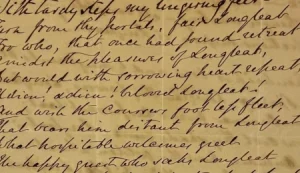 With tardy steps my lingering feet
Turn from thy portals, fair Longleat
For who, that once had found retreat
Amidst the pleasures of Longleat,
But would with sorrowing heart repeat,
Adieu! adieu! beloved Longleat!
And with the coursers foot steps fleet,
That bears him distant from Longleat
What hospitable welcomes greet
The happy guest who seeks Longleat